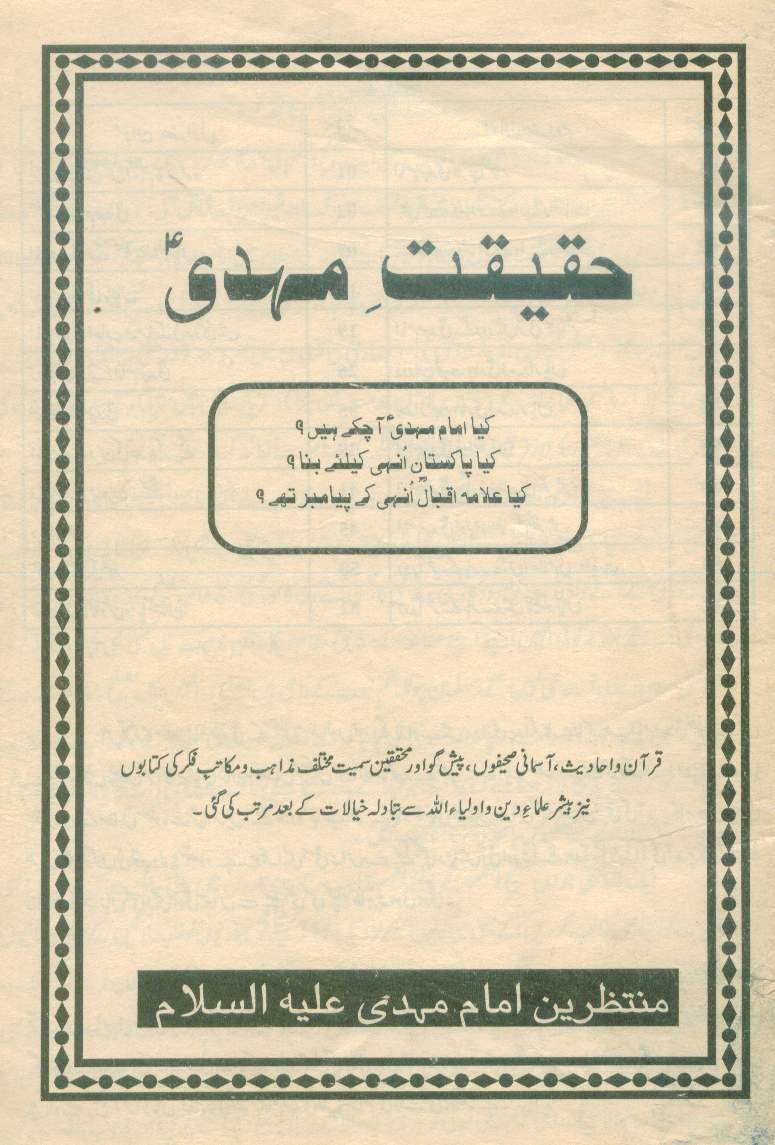 حقیقتِ مہدیؑ
کیا امام مہدیؑ آ چکے ہیں؟
کیا پاکستان اُنہی کیلئے بنا؟
کیا علامہ اقبالؒ اُنہی کے پیامبر تھے؟
قرآن و احادیث، آسمانی صحیفوں، پیش گو اور محققین سمیت مختلف مذاہب و مکاتب فکر کی کتابوں
نیز بیشتر علماءِ دین و اولیاء اللہ سے تبادلہ خیالات کے بعد مرتب کی گئی۔
منتظرین امام مہدی علیہ السلام